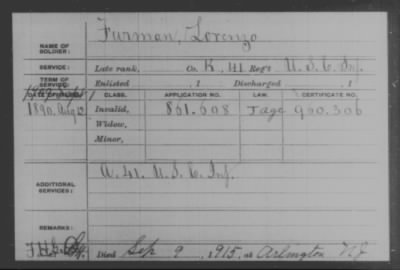 NAME OF SOLDIER: Furman, Lorenzo
SERVICE: Late rank, Co. K, 41 Reg't U.S.C. Inf.
TERM OF SERVICE: Enlisted , 1 Discharged , 1
DATE OF FILING. CLASS. APPLICATION NO. LAW. CERTIFICATE NO.
1890. Aug Invalid, 861.608 960.306
Widow,
Minor,
ADDITIONAL SERVICES: A. 41. U.S.C. Inf.
REMARKS:
Died Sep 9, 1915, at Arlington NJ